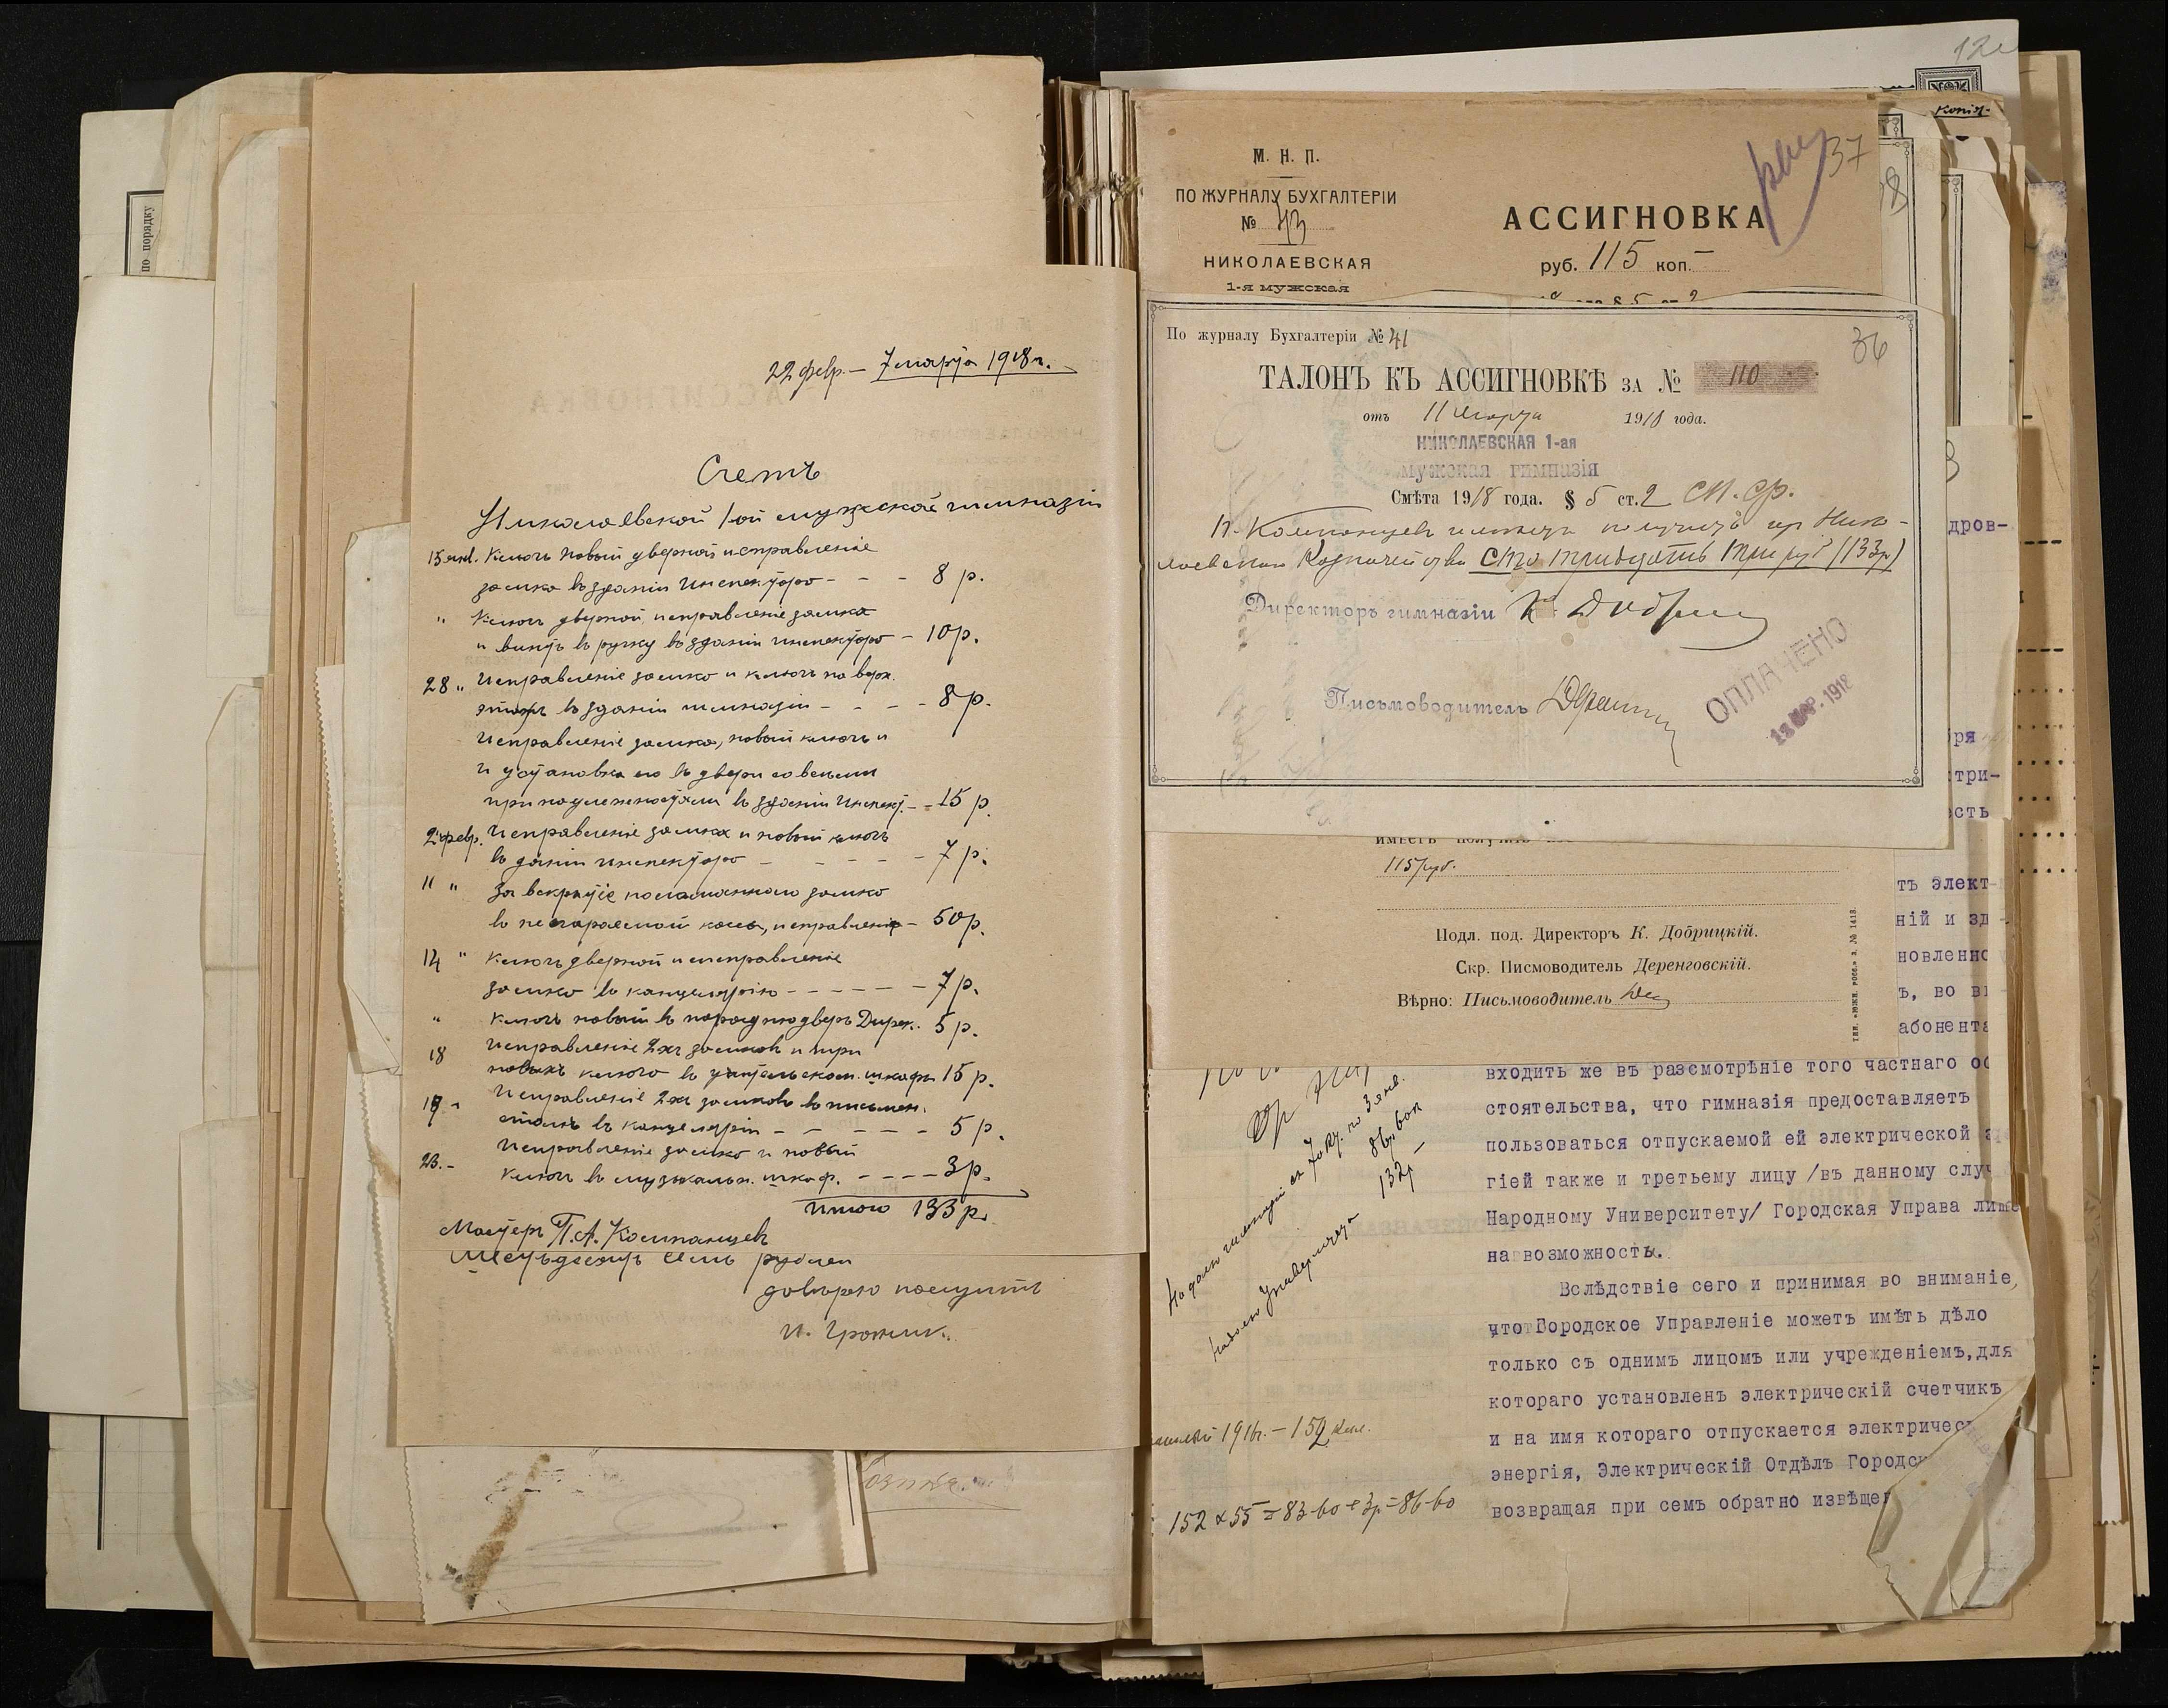 по порядку
22 февр. — 7 марта 1918 г.
Счетъ
Николаевской 1ой мужской гимназіи
15 янв. Ключъ новый дверной исправленіе
замка въ зданіи Инспектора - - - 8 р.
" Ключъ дверной, исправленіе замка
и винтъ въ ручку въ зданіи инспектора - 10 р.
28 " Исправленіе замка и ключъ на верх.
этажъ въ зданіи гимназіи - - - - 8 р.
Исправленіе замка, новый ключъ и
и установка его въ двери со всеми
принадлежностями въ зданіи Инспект. - - 15 р.
2 февр. Исправленіе замка и новый ключъ
въ даніи инспектора - - - - - - 7 р.
11 " За вскрытіе поломанного замка
въ несгораемой кассы, исправленіе - 50 р.
14 " Ключъ дверной и исправленіе
замка въ канцелярію - - - - - - 7 р.
" Ключъ новый въ парадную дверь Дирек. 5 р.
18 Исправленіе 2хъ замковъ и три
новыхъ ключа въ учительском. шкафы 15 р.
19 - Исправленіе 2хъ замковъ въ письмен.
столъ въ канцелярии - - - - - - 5 р.
23. - Исправленіе замка и новый
ключъ въ музыкальн. шкаф. - - - - 3 р.
Итого 133 р.
Мастеръ П. А. Компанцевъ
семь рублей
довѣряю получить
12
копія
М. Н. П.
37
ПО ЖУРНАЛУ БУХГАЛТЕРІИ
№ 43
АССИГНОВКА
руб. 115 коп. —
НИКОЛАЕВСКАЯ
1-я мужская
По журналу Бухгалтеріи № 41
36
ТАЛОНЪ КЪ АССИГНОВКѢ ЗА № 110
отъ 11 Марта 1918 года.
НИКОЛАЕВСКАЯ 1-ая
мужская гимназія
Смѣта 1918 года. § 5 ст. 2 сп. ср.
П. Компанцевъ имѣетъ получить изъ Нико-
лаевскаго Казначейства сто тридцать три руб (133 р)
Директоръ гимназіи
Письмоводитель
ОПЛАЧЕНО
МАР. 1918
имѣетъ получить
115 руб.
Подл. под. Директоръ К. Добрицкій.
Скр. Писмоводитель Деренговскій.
Вѣрно: Письмоводитель
дров-
ря
три-
ость
тъ элект
ній и зд
новленно
ъ, во в
абонента
входить же въ разсмотрѣніе того частнаго об
стоятельства, что гимназія предоставляетъ
пользоваться отпускаемой ей электрической э
гіей также и третьему лицу /въ данному случ
Народному Университету/ Городская Управа лише
на возможность.
Вслѣдствіе сего и принимая во вниманіе,
что Городское Управленіе можетъ имѣть дѣло
только съ однимъ лицомъ или учрежденіемъ, для
котораго установленъ электрическій счетчикъ
и на имя котораго отпускается электричес
энергія, Электрическій Отдѣлъ Городск
возвращая при семъ обратно извѣще
На долю гимназіи
86 р. 60 к
На долю Университета 132 р —
152 x 55 = 83-60 + 3 р = 86-60